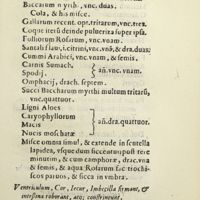 Baccarum myrthi, vnc. duas.
Cola, & his misce.
Gallarum recent. opt. tritarum, vnc. tres.
Coque iterū deinde puluerizā super ipsa.
Folliorum Rosarum, vnc. vnam.
Santali flaui, i. citrini, vnc. vnā, & dra. duas.
Cummi Arabici, vnc. vnam, & semis.
Carnis Sumach,
Spodij, } añ. vnc. vnam.
Omphacij, drach. septem.
Succi Baccharum myrthi multum tritarū,
vnc. quatuor.
Ligni Aloes
Caryophyllorum
Macis } añ. dra. quattuor.
Nucis moschatæ
Misce omnia simul, & extende in scutella
lapidea, vsque dum siccentur: post tere
minutim, & cum camphoræ, drac. vna
& semis, & aqua Rosarum fac trochis-
cos paruos, & sicca in vmbra.
Ventriculum, Cor, Iecur, Imbecilla firmant, &
intestina roborant, atq; constringunt,